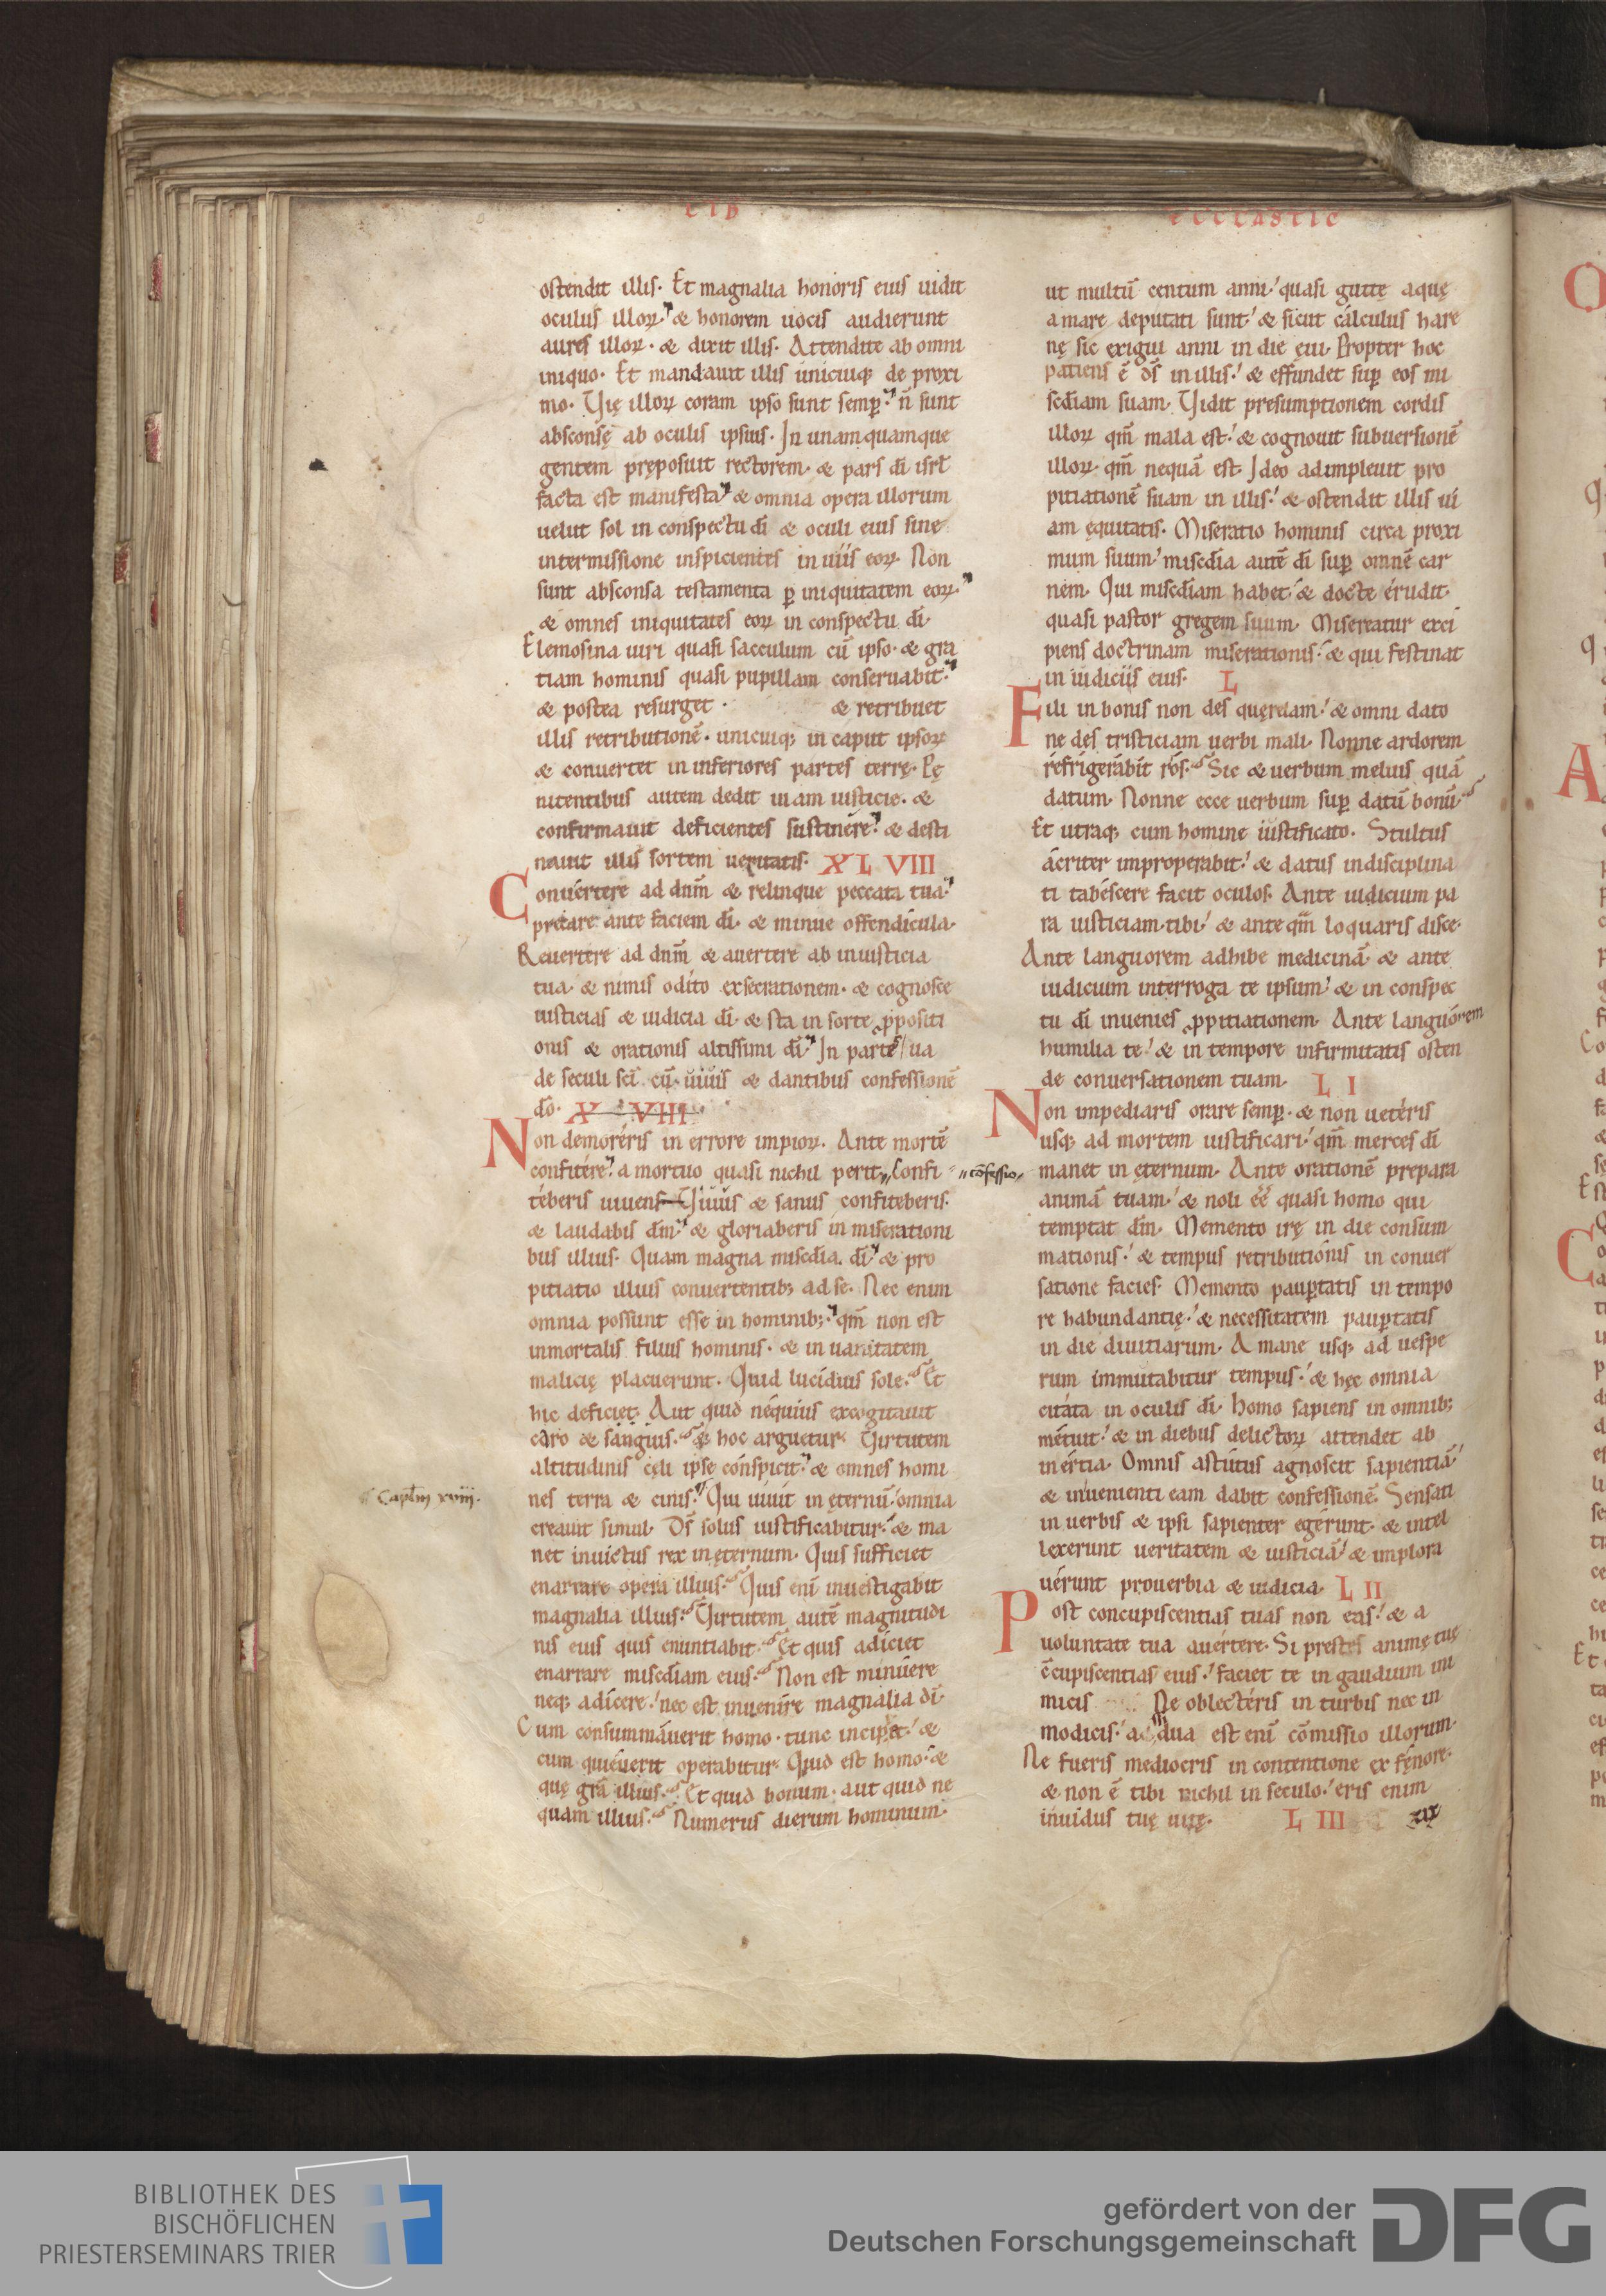 ecccastic
ostendit illis. Et magnalia honoris eius uidit
oculus illoꝝ & honorem uocis audierunt
aures illoꝝ. & dixit illis. Attendite ab omni
iniquo. Et mandauit illis unicuiqꝫ de proxi
mo. Vię illoꝝ coram ipso sunt semꝑ. n̄ sunt
absconsę ab oculis ipsius. In unamquamque
gentem pręposuit rectorem. & pars dī isrl̄
facta est manifesta & omnia opera illorum
uelut sol in conspectu dī & oculi eius sine
intermissione inspicientes in uiis eoꝝ. Non
sunt absconsa testamenta ꝑ iniquitatem eoꝝ.
& omnes iniquitates eoꝝ in conspectu dī.
Elemosina uiri quasi sacculum cū ipso. & gra
tiam hominis quasi pupillam conseruabit.
& postea resurget. & retribuet
illis retributionē. unicuiqꝫ in caput ipsoꝝ
& conuertet in inferiores partes terrę. Pę
nitentibus autem dedit uiam iusticie. &
confirmauit deficientes sustinere. & desti
nauit illis sortem ueritatis. XL VIII
Conuertere ad dnm̄ & relinque peccata tua.
precare ante faciem dī. & minue offendicula.
Reuertere ad dnm̄ & auertere ab iniusticia
tua. & nimis odito exsecrationem. & cognosce
iusticias & iudicia dī. & sta in sorte ꝓpositi
onis & orationis altissimi dī. In partes ua
de seculi scī. cū uiuis & dantibus confessionē
dō. X VIII
Non demoreris in errore impioꝝ. Ante mortē
confitere. a mortuo quasi nichil perit, Confi
confessio
teberis uiuens Viuus & sanus confiteberis.
& laudabis dm̄. & gloriaberis in miserationi
bus illius. Quam magna miscdia. dī & pro
pitiatio illius conuertentibꝫ ad se. Nec enim
omnia possunt esse in hominibꝫ. qm̄ non est
inmortalis filius hominis. & in uanitatem
malicię placuerunt. Quid lucidius sole. Et
hic deficiet. Aut quid nequius excogitauit
caro & sanguis. & hoc arguetur. Virtutem
altitudinis cęli ipse conspicit. & omnes homi
Capl̄m xviii.
nes terra & cinis. Qui uiuit in ęternū. omnia
creauit simul. Ds̄ solus iustificabitur. & ma
net inuictus rex in ęternum. Quis sufficiet
enarrare opera illius. Quis eni inuestigabit
magnalia illius. Virtutem autē magnitudi
nis eius quis enuntiabit. Et quis adiciet
enarrare miscdiam eius. Non est minuere
neqꝫ adicere. nec est inuenire magnalia dī.
Cum consummauerit homo. tunc incipiet. &
cum quieuerit operabitur. Quid est homo. &
quę grā illius. Et quid bonum. aut quid ne
quam illius. Numerus dierum hominum.
ut multū centum anni. quasi guttę aquę
amare deputati sunt. & sicut calculus hare
nę sic exigui anni in die ęui. Propter hoc
patiens ē ds̄ in illis. & effundet suꝑ eos mi
scdiam suam. Vidit presumptionem cordis
illoꝝ qm̄ mala est. & cognouit subuersionē
illoꝝ qm̄ nequā est. Ideo adimpleuit pro
pitiationē suam in illis. & ostendit illis ui
am ęquitatis. Miseratio hominis circa proxi
mum suum. miscdia autē dī suꝑ omnē car
nem. Qui miscdiam habet. & docte erudit
quasi pastor gregem suum. Misereatur exci
piens doctrinam miserationis. & qui festinat
in iudiciis eius. L
Fili in bonis non des querelam. & omni dato
ne des tristiciam uerbi mali. Nonne ardorem
refrigerabit ros. Sic & uerbum melius quā
datum. Nonne ecce uerbum suꝑ datū bonū.
Et utraqꝫ cum homine iustificato. Stultus
acriter improperabit. & datus indisciplina
ti tabescere facit oculos. Ante iudicium pa
ra iusticiam tibi. & ante qm̄ loquaris disce.
Ante languorem adhibe medicinā. & ante
iudicium interroga te ipsum. & in conspec
tu dī inuenies ꝓpitiationem. Ante languorem
humilia te. & in tempore infirmitatis osten
de conuersationem tuam. L I
Non impediaris orare semꝑ. & non ueteris
usqꝫ ad mortem iustificari. qm̄ merces dī
manet in ęternum. Ante orationē prepara
animā tuam. & noli eē quasi homo qui
temptat dm̄. Memento irę in die consum
mationis. & tempus retributionis in conuer
satione faciei. Memento pauꝑtatis in tempo
re habundantię. & necessitatem pauꝑtatis
in die diuitiarum. A mane usqꝫ ad uespe
rum immutabitur tempus. & hęc omnia
citata in oculis dī. Homo sapiens in omnibꝫ
metuit. & in diebus delictoꝝ attendet ab
inertia. Omnis astutus agnoscit sapientiā
& inuenienti eam dabit confessionē. Sensati
in uerbis & ipsi sapienter egerunt. & intel
lexerunt ueritatem & iusticiā & implora
uerunt prouerbia & iudicia. L II
Post concupiscentias tuas non eas. & a
uoluntate tua auertere. Si prestes animę tuę
c̄cupiscentias eius. faciet te in gaudium ini
micis Ne oblecteris in turbis nec in
modicis. assidua est enī cōmissio illorum.
Ne fueris mediocris in contentione ex fenore.
& non ē tibi nichil in seculo. eris enim
inuidus tuę uitę. L III xix
BIBLIOTHEK DES
BISCHÖFLICHEN
PRIESTERSEMINARS TRIER
gefördert von der
Deutschen Forschungsgemeinschaft
DFG